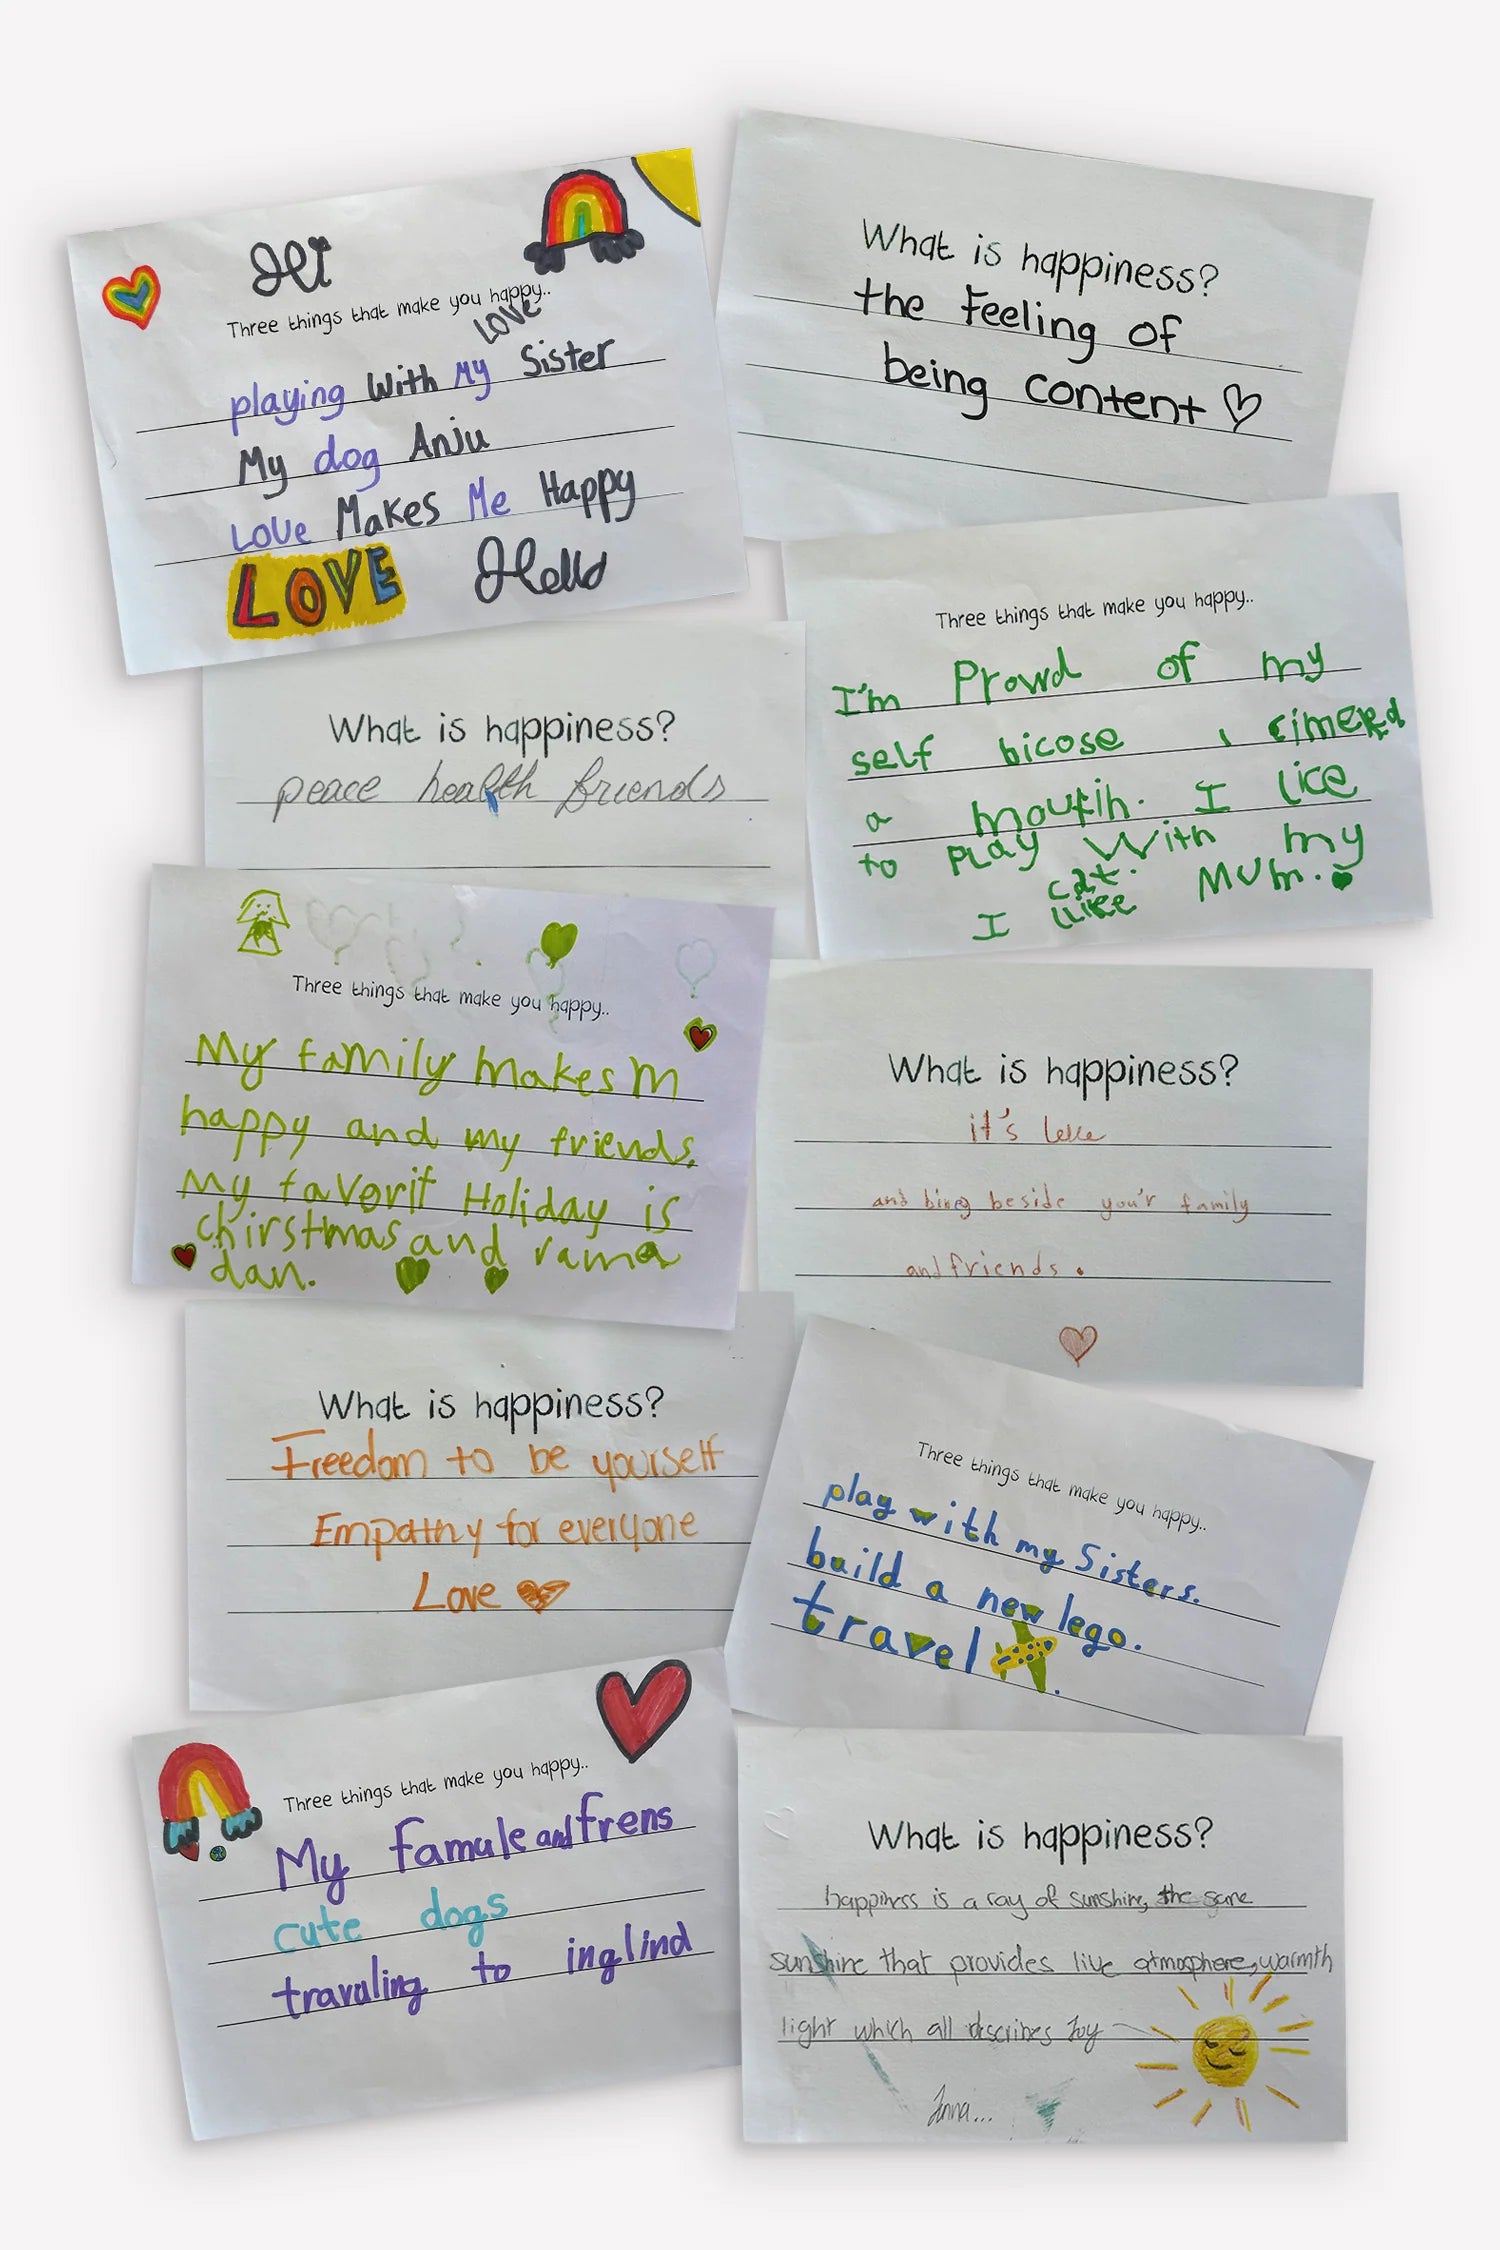 Hi
Three things that make you happy..
love
playing With My Sister
My dog Anju
Love Makes Me Happy
LOVE Hello
What is happiness?
the Feeling of
being content
What is happiness?
peace health friends
Three things that make you happy..
I'm Prowd of my
self bicose i climerd
a moutih. I lice
to PLay With my
cat.
I like MUM.
Three things that make you happy..
My family makes m
happy and my friends.
My favorit Holiday is
chirstmas and rama
dan.
What is happiness?
it's
and bieng beside you'r family
and friends.
What is happiness?
Freedom to be yourself
Empathy for everyone
Love
Three things that make you happy..
play with my Sisters.
build a new lego.
travel .
Three things that make you happy..
My famule and frens
cute dogs
travuling to inglind
What is happiness?
happiness is a ray of sunshine, the same
sunshine that provides live atmosphere, warmth
light which all describes Joy